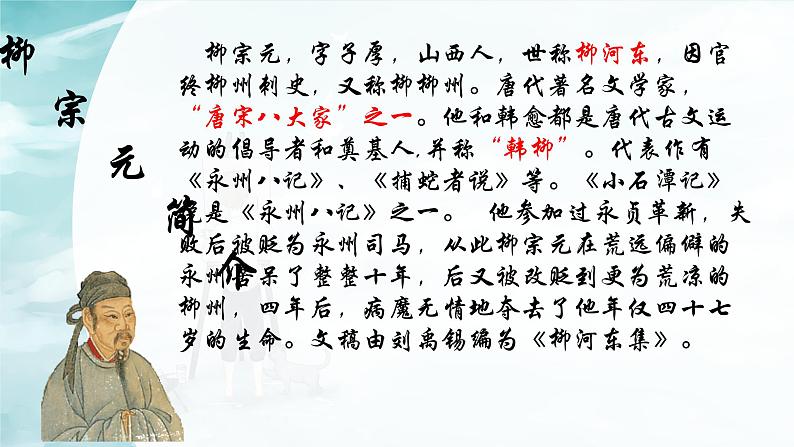 柳宗元简介
柳宗元，字子厚，山西人，世称柳河东，因官
终柳州刺史，又称柳柳州。唐代著名文学家，
“唐宋八大家”之一。他和韩愈都是唐代古文运
动的倡导者和奠基人,并称“韩柳”。代表作有
《永州八记》、《捕蛇者说》等。《小石潭记》
就是《永州八记》之一。 他参加过永贞革新，失
败后被贬为永州司马，从此柳宗元在荒远偏僻的
永州苦呆了整整十年，后又被改贬到更为荒凉的
柳州，四年后，病魔无情地夺去了他年仅四十七
岁的生命。文稿由刘禹锡编为《柳河东集》。